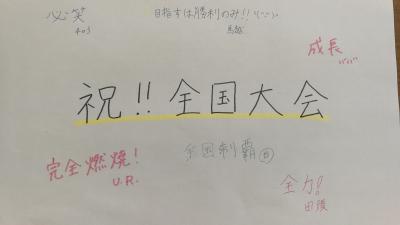 必笑
403
目指すは勝利のみ!!
馬越
成長
ババ
祝!!全国大会
全国制覇
完全燃焼!
U.R.
全力!
田隈